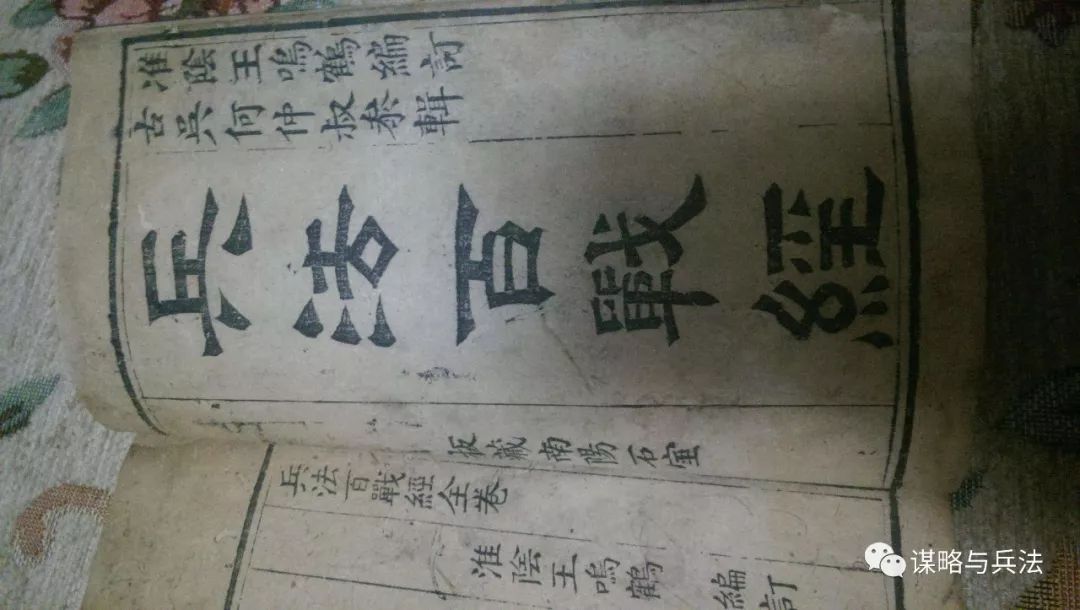 淮陰王鳴鶴編訂
古吳何仲叔叅輯
兵法百戰經
板藏南陽石室
兵法百戰經全卷
淮陰王鳴鶴 編訂
谋略与兵法